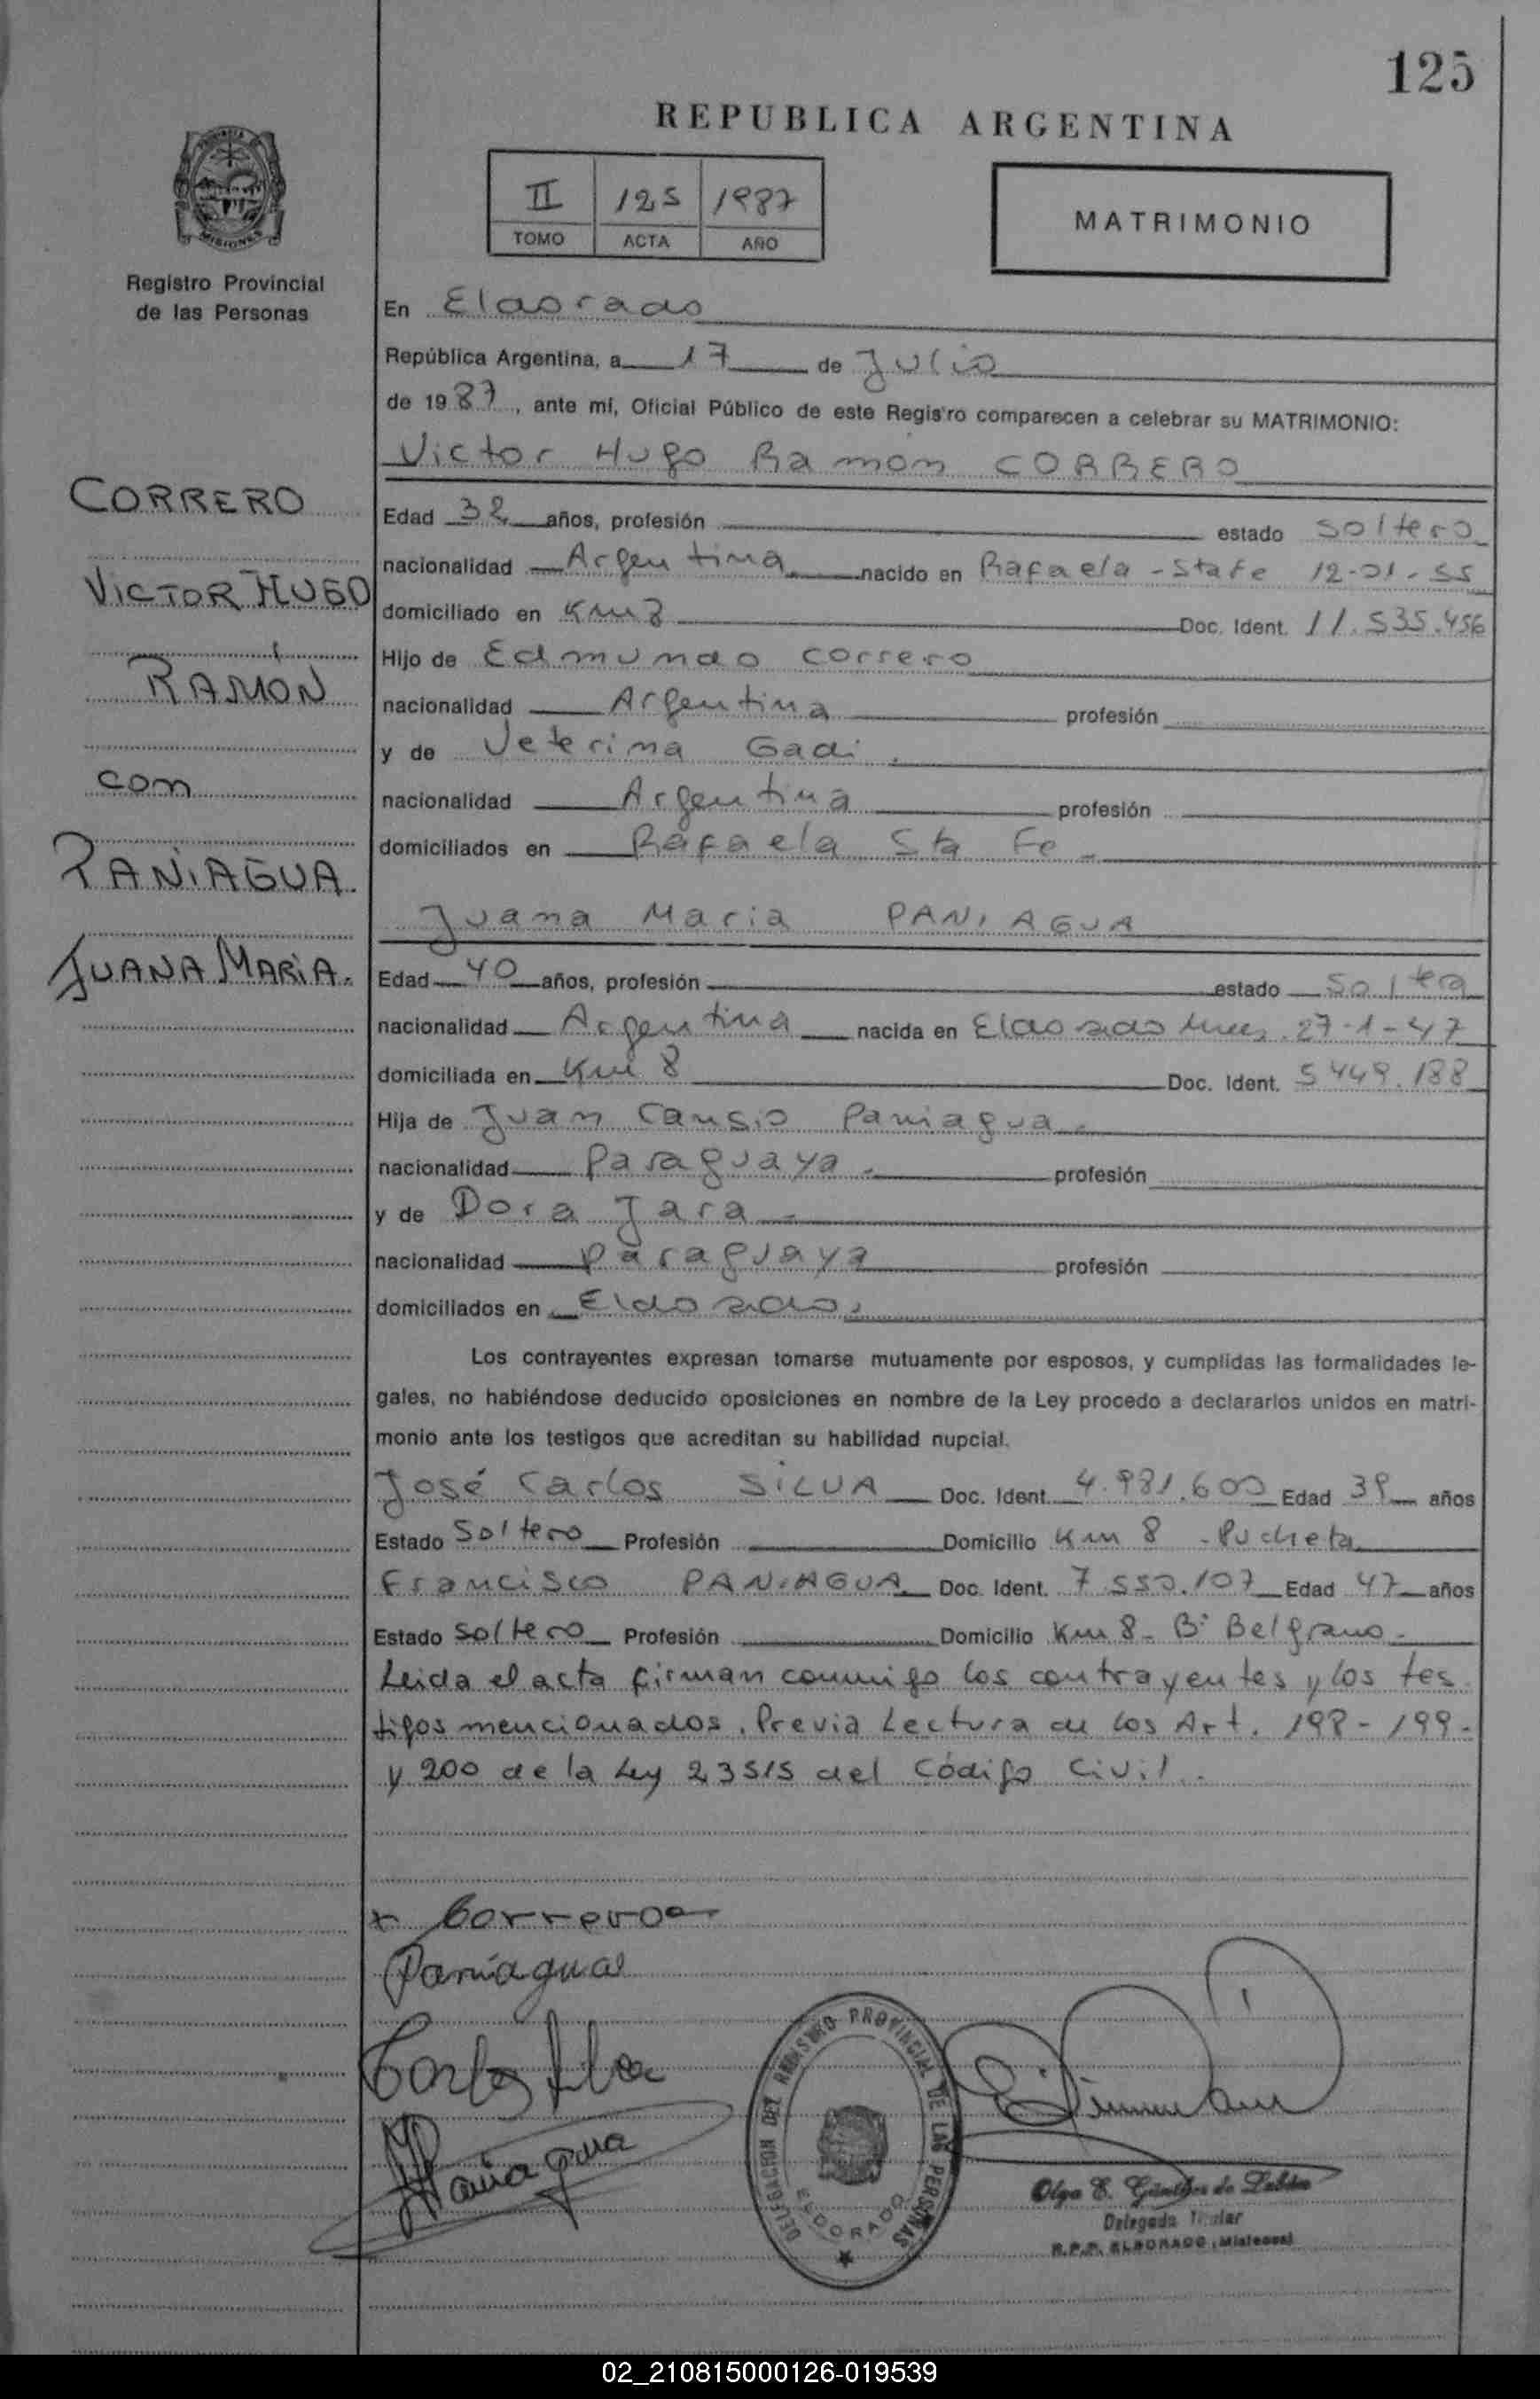 125
REPUBLICA ARGENTINA
II 125 1987
TOMO ACTA AÑO
MATRIMONIO
MISIONES
Registro Provincial
de las Personas
CORRERO
VICTOR HUGO
RAMÓN
con
PANIAGUA.
JUANA MARIA.
En Eldorado
República Argentina, a 17 de Julio
de 1987, ante mí, Oficial Público de este Regis'ro comparecen a celebrar su MATRIMONIO:
Victor Hugo Ramon CORRERO
Edad 32 años, profesión estado soltero
nacionalidad Argentina nacido en Rafaela - Sta Fe 12-01-55
domiciliado en Km 8 Doc. Ident. 11.535.456
Hijo de Edmundo Correro
nacionalidad Argentina profesión
y de Veterina Gadi
nacionalidad Argentina profesión
domiciliados en Rafaela Sta Fe -
Juana Maria PANIAGUA
Edad 40 años, profesión estado soltera
nacionalidad Argentina nacida en Eldorado 27-1-47
domiciliada en Km 8 Doc. Ident. 5449.188
Hija de Juan Cansio Paniagua.
nacionalidad Paraguaya profesión
y de Dora Jara
nacionalidad Paraguaya profesión
domiciliados en Eldorado.
Los contrayentes expresan tomarse mutuamente por esposos, y cumplidas las formalidades le-
gales, no habiéndose deducido oposiciones en nombre de la Ley procedo a declararlos unidos en matri-
monio ante los testigos que acreditan su habilidad nupcial.
José Carlos SILVA Doc. Ident. 4.981.600 Edad 39 años
Estado Soltero Profesión Domicilio Km 8 - Pucheta
Francisco PANIAGUA Doc. Ident. 7.550.107 Edad 47 años
Estado soltero Profesión Domicilio Km 8 - B° Belgrano -
Leida el acta firman conmigo los contrayentes y los tes
tigos mencionados. Previa Lectura de los Art. 198 - 199 -
y 200 de la Ley 23515 del Código Civil.
x Correro
Paniagua
Carlos Silva
Paniagua
DELEGACION DEL REGISTRO PROVINCIAL DE LAS PERSONAS
ELDORADO
Olga E. Günther de
Delegada Titular
R.P.P. ELDORADO (Misiones)
02_210815000126-019539